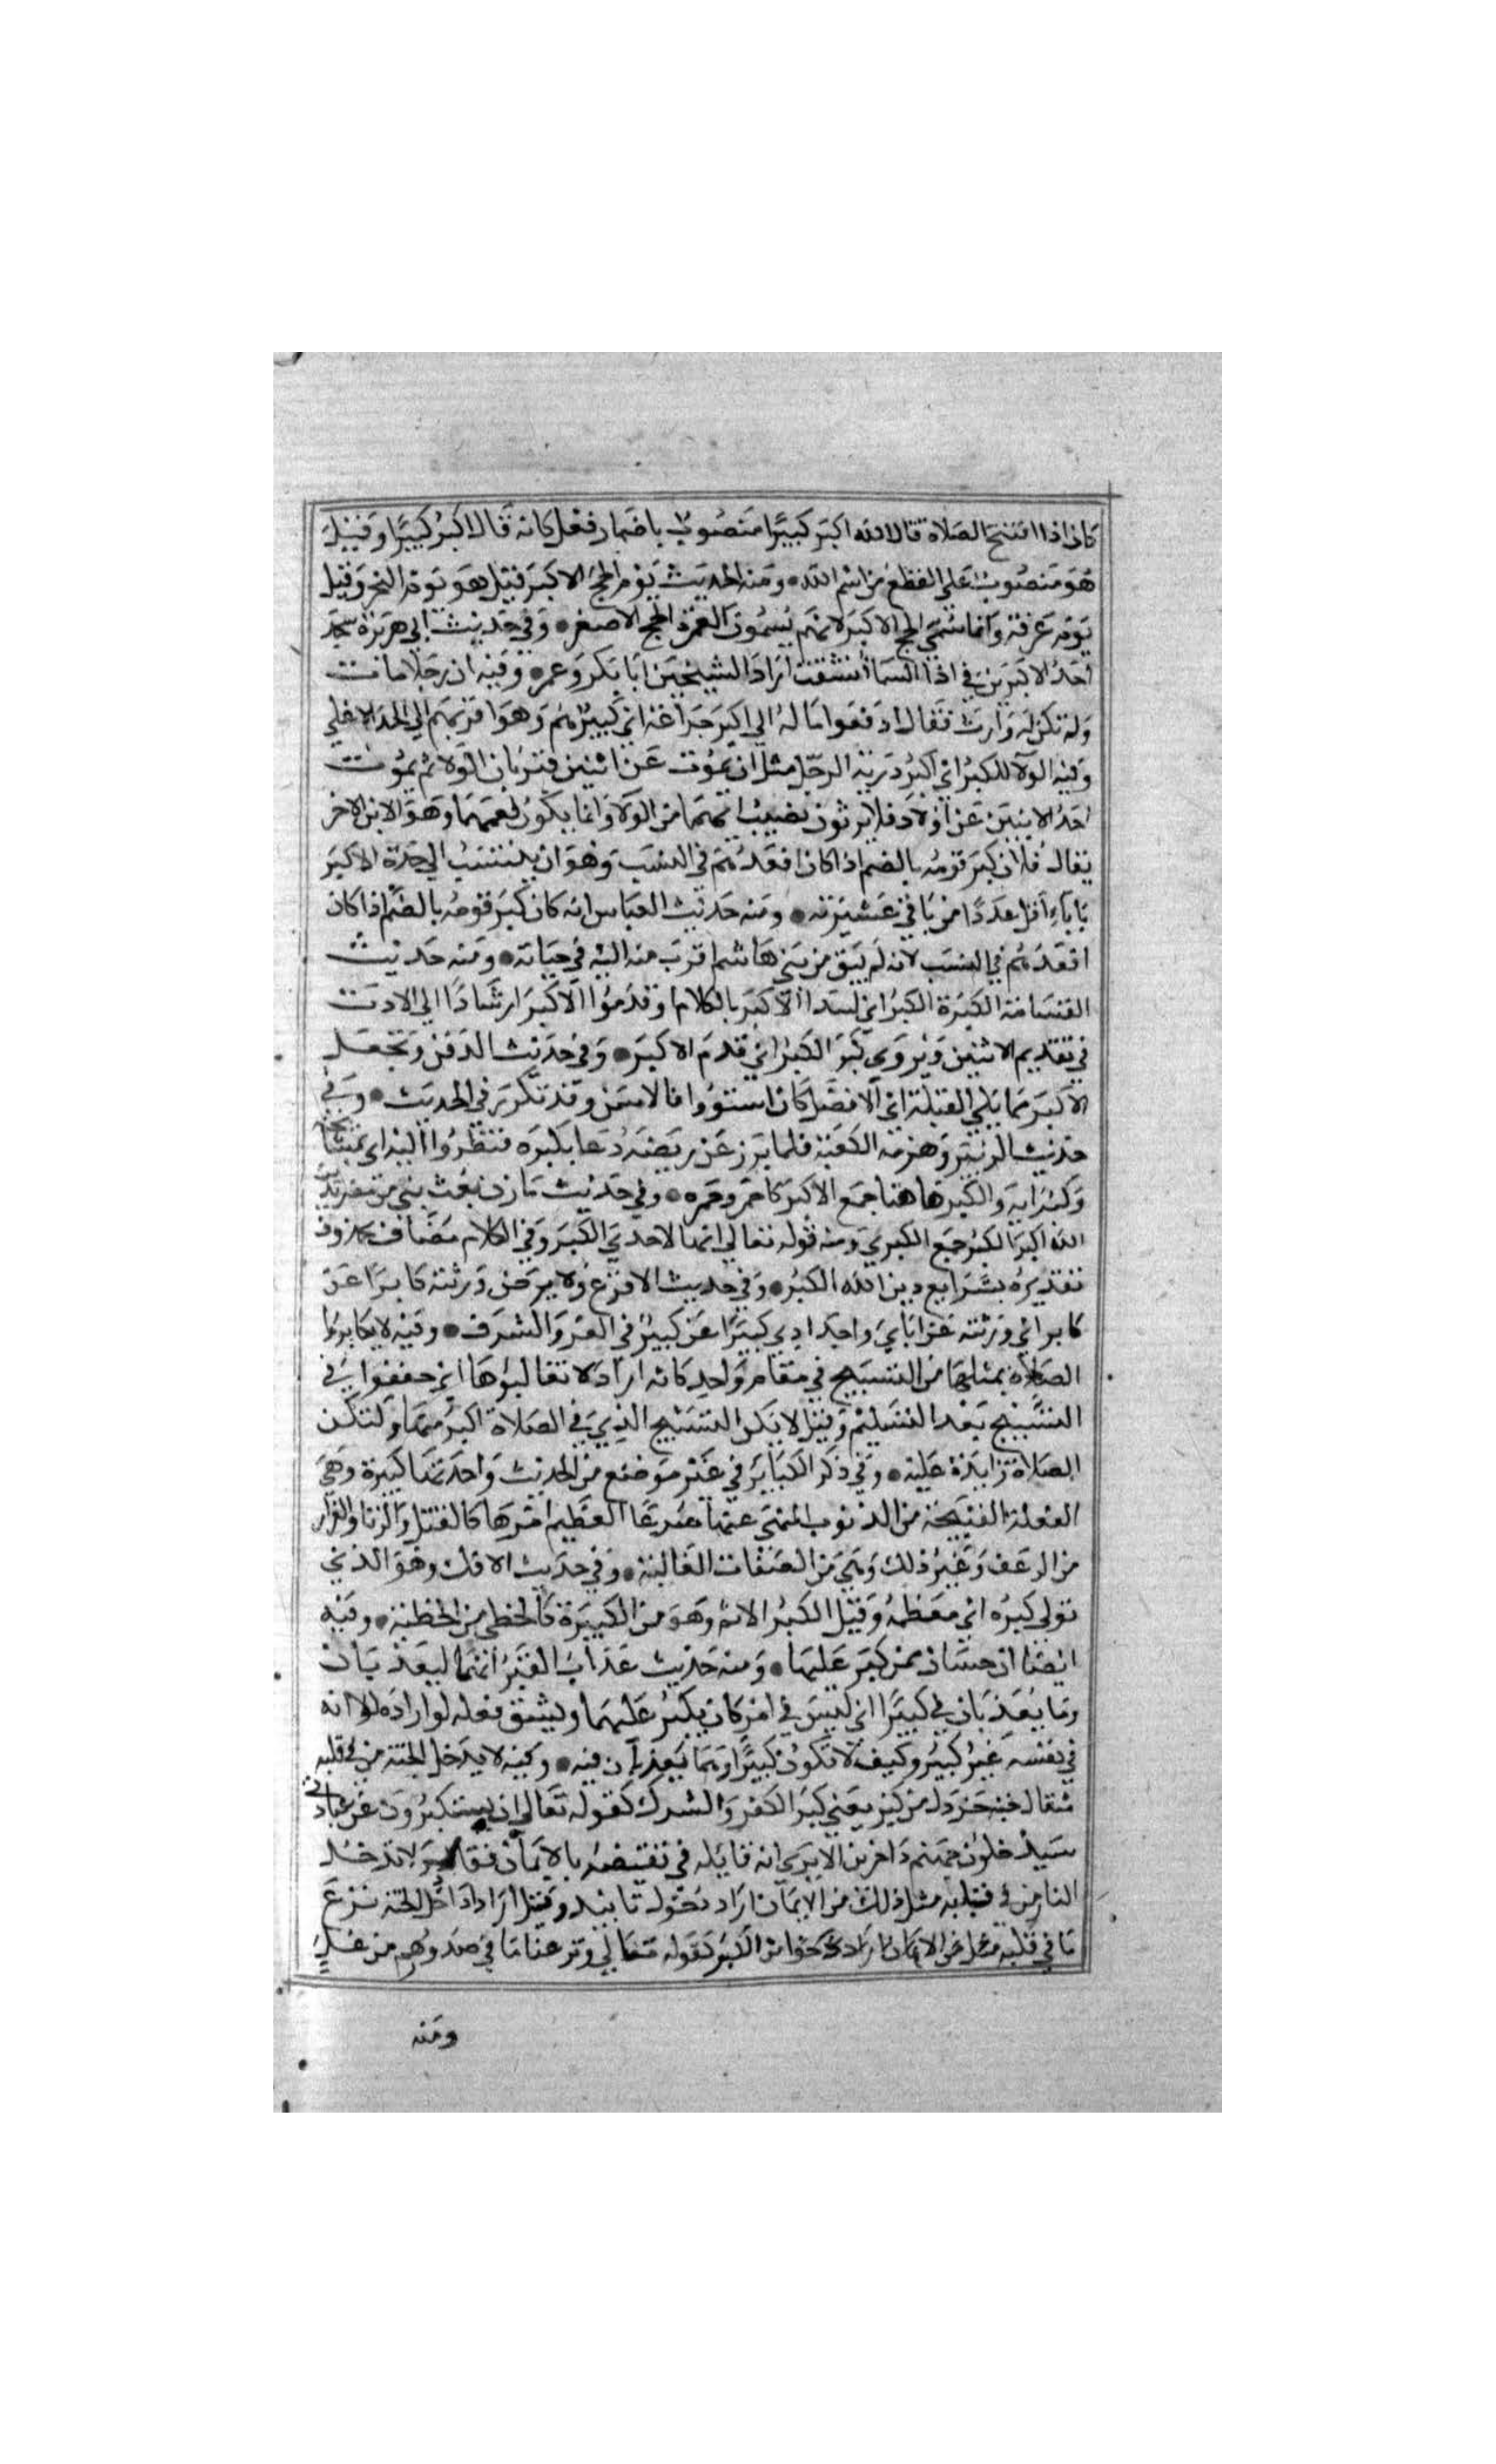 كان اذا افتتح الصلاة قال الله اكبر كبيرًا منصوب باضمار فعل كانه قال اكبر كبيرًا وقيل
هو منصوب على القطع من اسم الله ومنه الحديث يوم الحج الاكبر قيل هو يوم النحر وقيل
يوم عرفة وانما سمي الحج الاكبر لانهم يسمون العمرة الحج الاصغر وفي حديث ابي هريرة سجد
احد الاكبرين في اذا السماء انشقت اراد الشيخين ابا بكر وعمر وفيه ان رجلا مات
ولم تكن له وارث فقال ادفعوا ماله الى اكبر خزاعة اي كبيرهم وهو اقربهم الى الجد الاعلى
وفيه الولا للكبر اي اكبر ذرية الرجل مثل ان يموت عن اثنين فترثان الولا ثم يموت
احد الابنين عن اولاد فلا يرثون نصيب ابيهما من الولا وانما يكون لعمهما وهو الابن الاخر
يقال فلان كبر قومه بالضم اذا كان اقعدهم في النسب وهو ان ينتسب الى جده الاكبر
باباءٍ اقل عددًا من باقي عشيرته ومنه حديث العباس انه كان كبر قومه بالضم اذا كان
اقعدهم في النسب لانه لم يبق من بني هاشم اقرب منه اليه في حياته ومنه حديث
القسامة الكبر الكبر اي ليبدا الاكبر بالكلام او قدموا الاكبر ارشادًا الى الادب
في تقديم الاثنين ويروى كبر الكبر اي قدم الاكبر وفي حديث الدفن وتجعل
الاكبر مما يلي القبلة اي الافضل كان استووا فالاسن وقد تكرر في الحديث وفي
حديث الزبير وهدمه الكعبة فلما برز عن ربضه دعا بكبره فنظروا اليه اي بمشايخه
وكبرايه والكبر هاهنا جمع الاكبر كاحمر وحمر وفي حديث مازن بعث نبي من مضر بدين
الله الكبر الكبر جمع الكبرى ومنه قوله تعالى انها لاحدى الكبر وفي الكلام مضاف محذوف
تقديره بشرايع دين الله الكبر وفي حديث الاقرع والابرص ورثته كابرًا عن
كابر اي ورثته عن اباي واجدادي كبيرًا عن كبير في العز والشرف وفيه لا تكابروا
الصلاة بمثلها من التسبيح في مقام واحد كانه اراد لا تغالبوها اي خففوا في
التسبيح بعد التسليم وقيل لا يكن التسبيح الذي في الصلاة اكبر منها ولتكن
الصلاة زايدة عليه وفي ذكر الكباير في غير موضع من الحديث واحدتها كبيرة وهي
الفعلة القبيحة من الذنوب المنهي عنها شرعًا العظيم امرها كالقتل والزنا والفرار
من الزحف وغير ذلك وهي من الصفات الغالبة وفي حديث الافك وهو الذي
تولى كبره اي معظمه وقيل الكبر الاثم وهو من الكبيرة كالخطي من الخطيئة وفيه
ايضا ان حسان ممن كبر عليها ومنه حديث عذاب القبر انهما ليعذبان
وما يعذبان في كبيرًا اي ليس في امر كان يكبر عليهما ويشق فعله لو اراده لا انه
في نفسه غير كبير وكيف لا تكون كبيرًا وهما يعذبان فيه وفيه لا يدخل الجنة من في قلبه
مثقال حبة خردل من كبر يعني كبر الكفر والشرك كقوله تعالى ان الذين يستكبرون عن عبادتي
سيدخلون جهنم داخرين الا ترى انه قابله في نقيضه بالايمان فقال ولا يدخل
النار من في قلبه مثل ذلك من الايمان اراد دخول تابيد وقيل اراد اذا دخل الجنة نزع
ما في قلبه من الكبر كقوله تعالى ونزعنا ما في صدورهم من غلٍ
ومنه